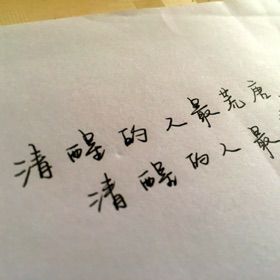 清醒的人最荒唐
清醒的人最